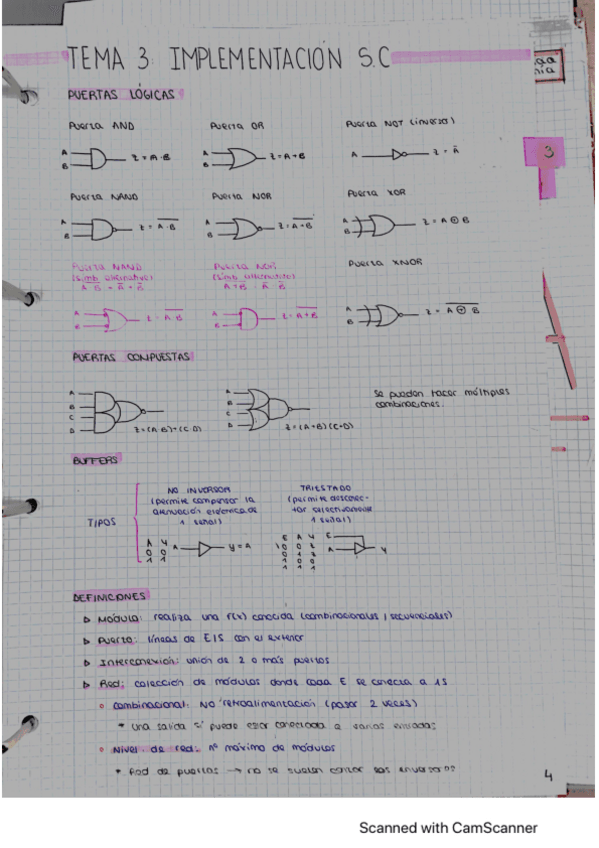 TEMA 3: IMPLEMENTACIÓN S.C
PUERTAS LÓGICAS
Puerta AND
Puerta OR
Puerta NOT (inversa)
A
B
z = A·B
A
B
z = A+B
A
z = Ā
3
Puerta NAND
Puerta NOR
Puerta XOR
A
B
z = \overline{A·B}
A
B
z = \overline{A+B}
A
B
z = A ⊕ B
Puerta NAND
(Simb alternativo)
Puerta NOR
(Simb alternativo)
Puerta XNOR
A
B
z = \overline{A·B}
A
B
z = \overline{A+B}
A
B
z = \overline{A ⊕ B}
PUERTAS COMPUESTAS
A
B
C
D
A
B
C
D
Se pueden hacer múltiples
combinaciones.
BUFFERS
TIPOS
NO INVERSOR
(permite compensar la
atenuación eléctrica de
1 señal)
TRIESTADO
(permite desconec-
tar selectivamente
1 señal)
A y
0 0
1 1
A
y = A
E A y
E
A
y
DEFINICIONES
▷ Módulo: realiza una f(x) conocida (combinacionales / secuenciales)
▷ Puerto: líneas de E/S con el exterior
▷ Interconexión: unión de 2 o más puertos
▷ Red: colección de módulos donde cada E se conecta a 1 S
◦ combinacional: NO retroalimentación (pasar 2 veces)
* una salida sí puede estar conectada a varias entradas
◦ Nivel de red: nº máximo de módulos
* Red de puertas → no se suelen contar los inversores
4
Scanned with CamScanner